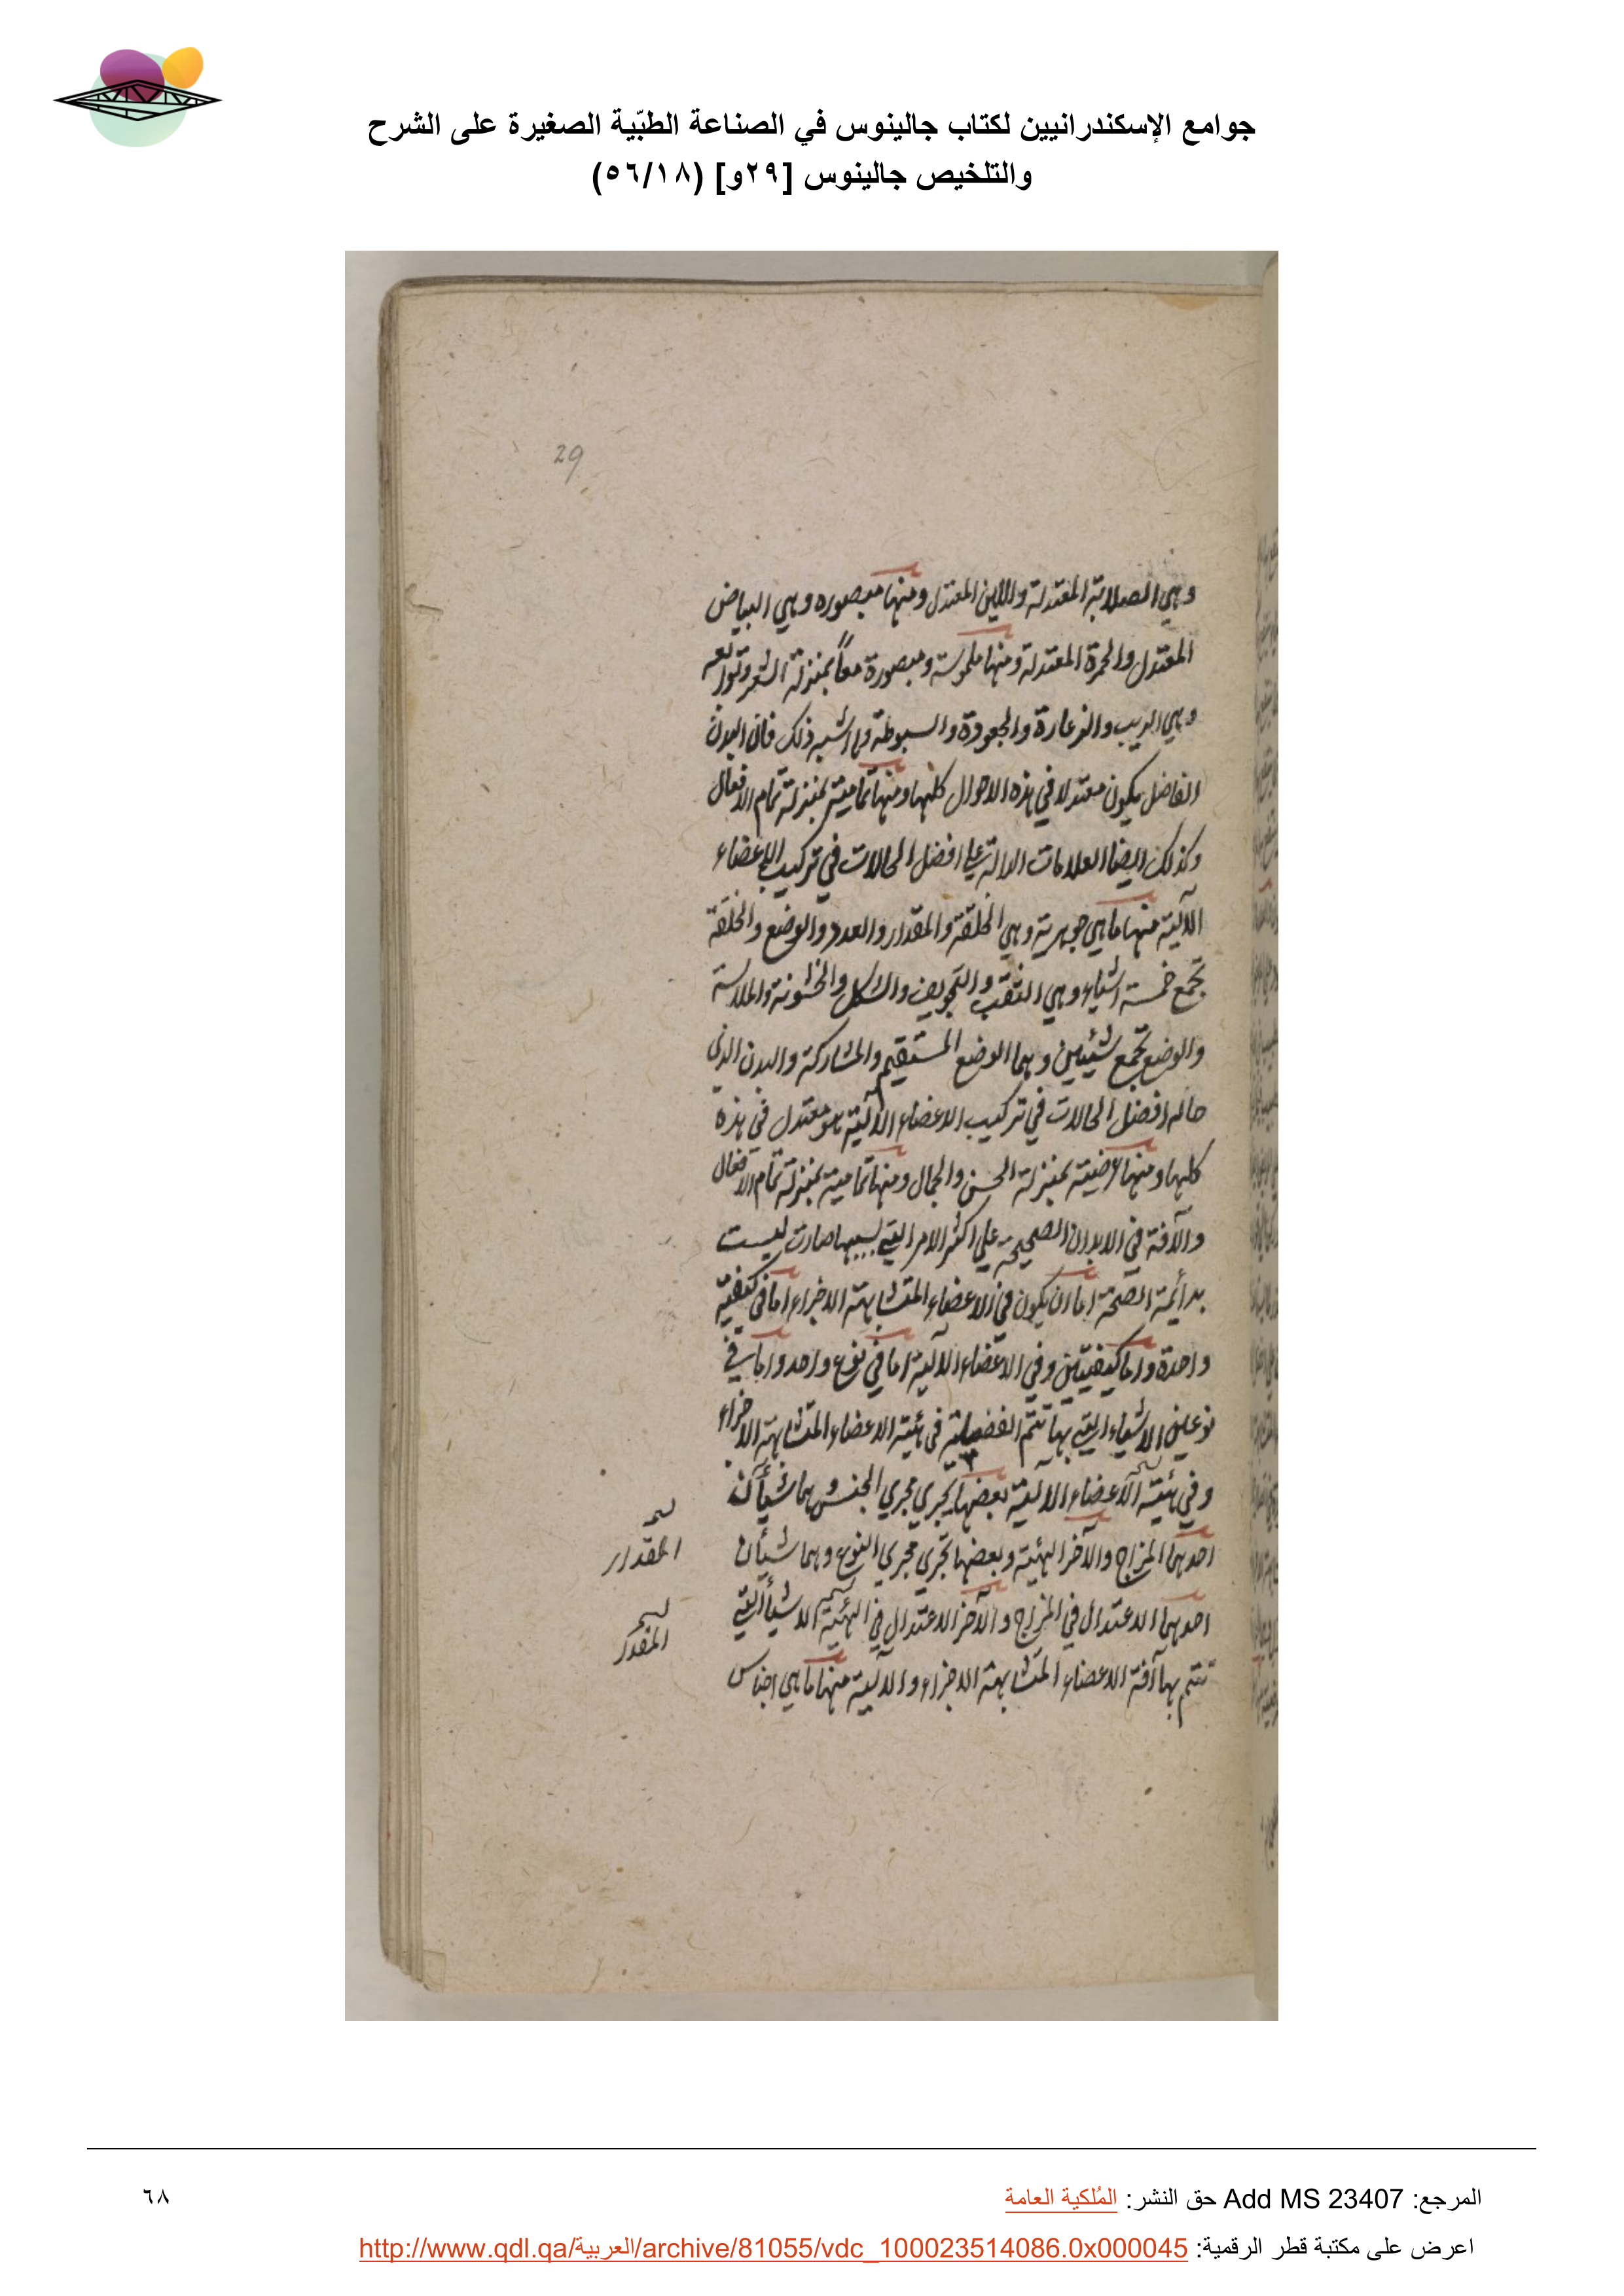 جوامع الإسكندرانيين لكتاب جالينوس في الصناعة الطبّية الصغيرة على الشرح
والتلخيص جالينوس [٢٩و] (٥٦/١٨)
29
وهي الصلابة المعتدلة واللين المعتدل ومنها مبصوره وهي البياض
المعتدل والحمرة المعتدلة ومنها ملموسة ومبصورة معاً بمنزلة الشعر وتوابعه
وهي الزبب والزعارة والجعودة والسبوطة وما اشبه ذلك فان البدن
الفاضل يكون معتدلا في هذه الاحوال كلها ومنها تمامية بمنزلة تمام الافعال
وكذلك ايضا العلامات الدالة علي افضل الحالات في تركيب الاعضاء
الآلية منها ما هي جوهرية وهي الخلقة والمقدار والعدد والوضع والخلقة
تجمع خمسة اشياء وهي الثقب والتجويف والشكل والخشونة والملاسة
والوضع تجمع شيئين وهما الوضع المستقيم والمشاركة والبدن الذي
حاله افضل الحالات في تركيب الاعضاء الآلية هو معتدل في هذه
كلها ومنها عرضية بمنزلة الحسن والجمال ومنها تمامية بمنزلة تمام الافعال
والآفة في الابدان الصحيحة علي اكثر الامر التي بسببها صارت ليست
بدائمة الصحة اما ان يكون في الاعضاء المتشابهة الاجزاء اما في كيفية
واحدة واما كيفيتين وفي الاعضاء الآلية اما في نوع واحد واما في
نوعين الاشياء التي بها تتم الفضيلة في هئية الاعضاء المتشابهة الاجزاء
وفي هئية الآعضاء الآلية بعضها يجري مجري الجنس وهما شيآن
احدهما المزاج والآخر الهئية وبعضها تجري مجري النوع وهما شيآن
المقدار
احدهما الاعتدال في المزاج والآخر الاعتدال في الهئية الاشيآ التي
المقدار
تتم بها آفة الاعضاء المتشابهة الاجزاء والآلية منها ما هي اجناس
المرجع: Add MS 23407 حق النشر: المُلكية العامة
٦٨
اعرض على مكتبة قطر الرقمية: http://www.qdl.qa/العربية/archive/81055/vdc_100023514086.0x000045